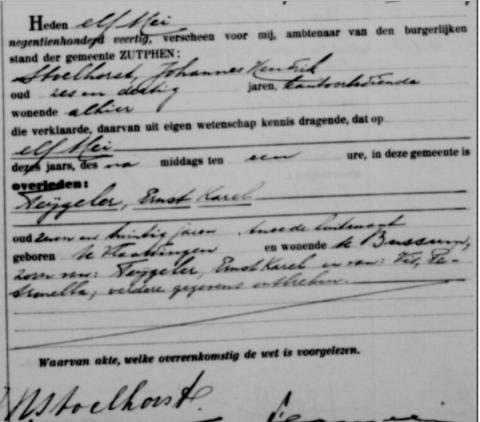 Heden elf Mei
negentienhonderd veertig, verscheen voor mij, ambtenaar van den burgerlijken
stand der gemeente ZUTPHEN:
Stoelhorst, Johannes Hendrik
oud zes en dertig jaren, kantoorbediende
wonende alhier
die verklaarde, daarvan uit eigen wetenschap kennis dragende, dat op
elf Mei
dezes jaars, des na middags ten een ure, in deze gemeente is
overleden:
Heijgeler, Ernst Karel
oud zeven en twintig jaren, tweede luitenant
geboren te Vlaardingen en wonende te Bussum,
zoon van: Heijgeler, Ernst Karel en van: Vet, Pe-
tronella, verdere gegevens ontbreken.
Waarvan akte, welke overeenkomstig de wet is voorgelezen.
Stoelhorst.